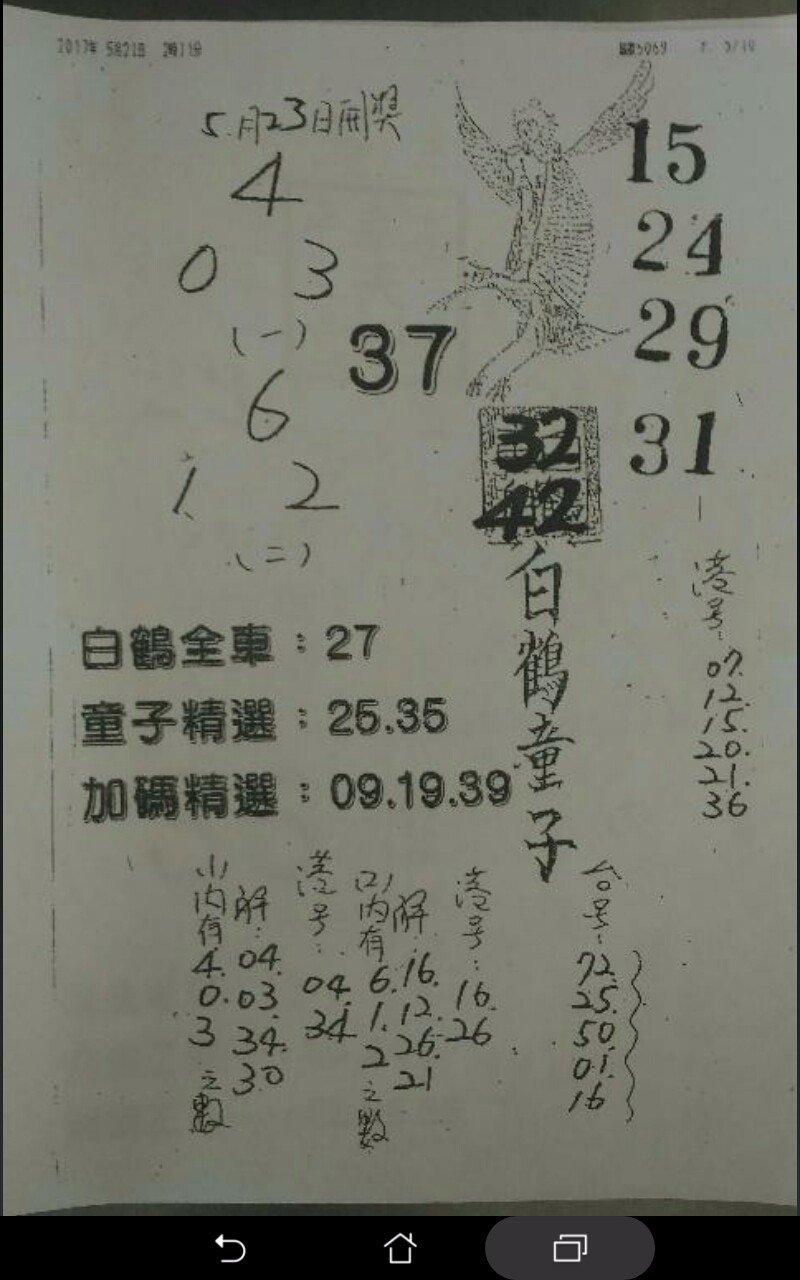 2017年 5月21日 2時11分
5069 P. 5/10
5月23日開獎
4
0 3
(一)
6
1 2
(二)
37
15
24
29
31
32
42
白鶴童子
白鶴全車：27
童子精選：25.35
加碼精選：09.19.39
港号：
07.
12.
15.
20.
21.
36
(1)內有
4.
0.
3
之數
解：
04.
03.
34.
30
港号：
04.
34
(2)內有
6.
1.
2
之數
解：
16.
12.
26.
21
港号：
16.
26
号：
72.
25.
50.
01.
16